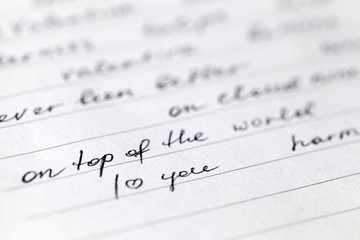 valentine
ever been better
on cloud nine
on top of the world
I ♡ you harm